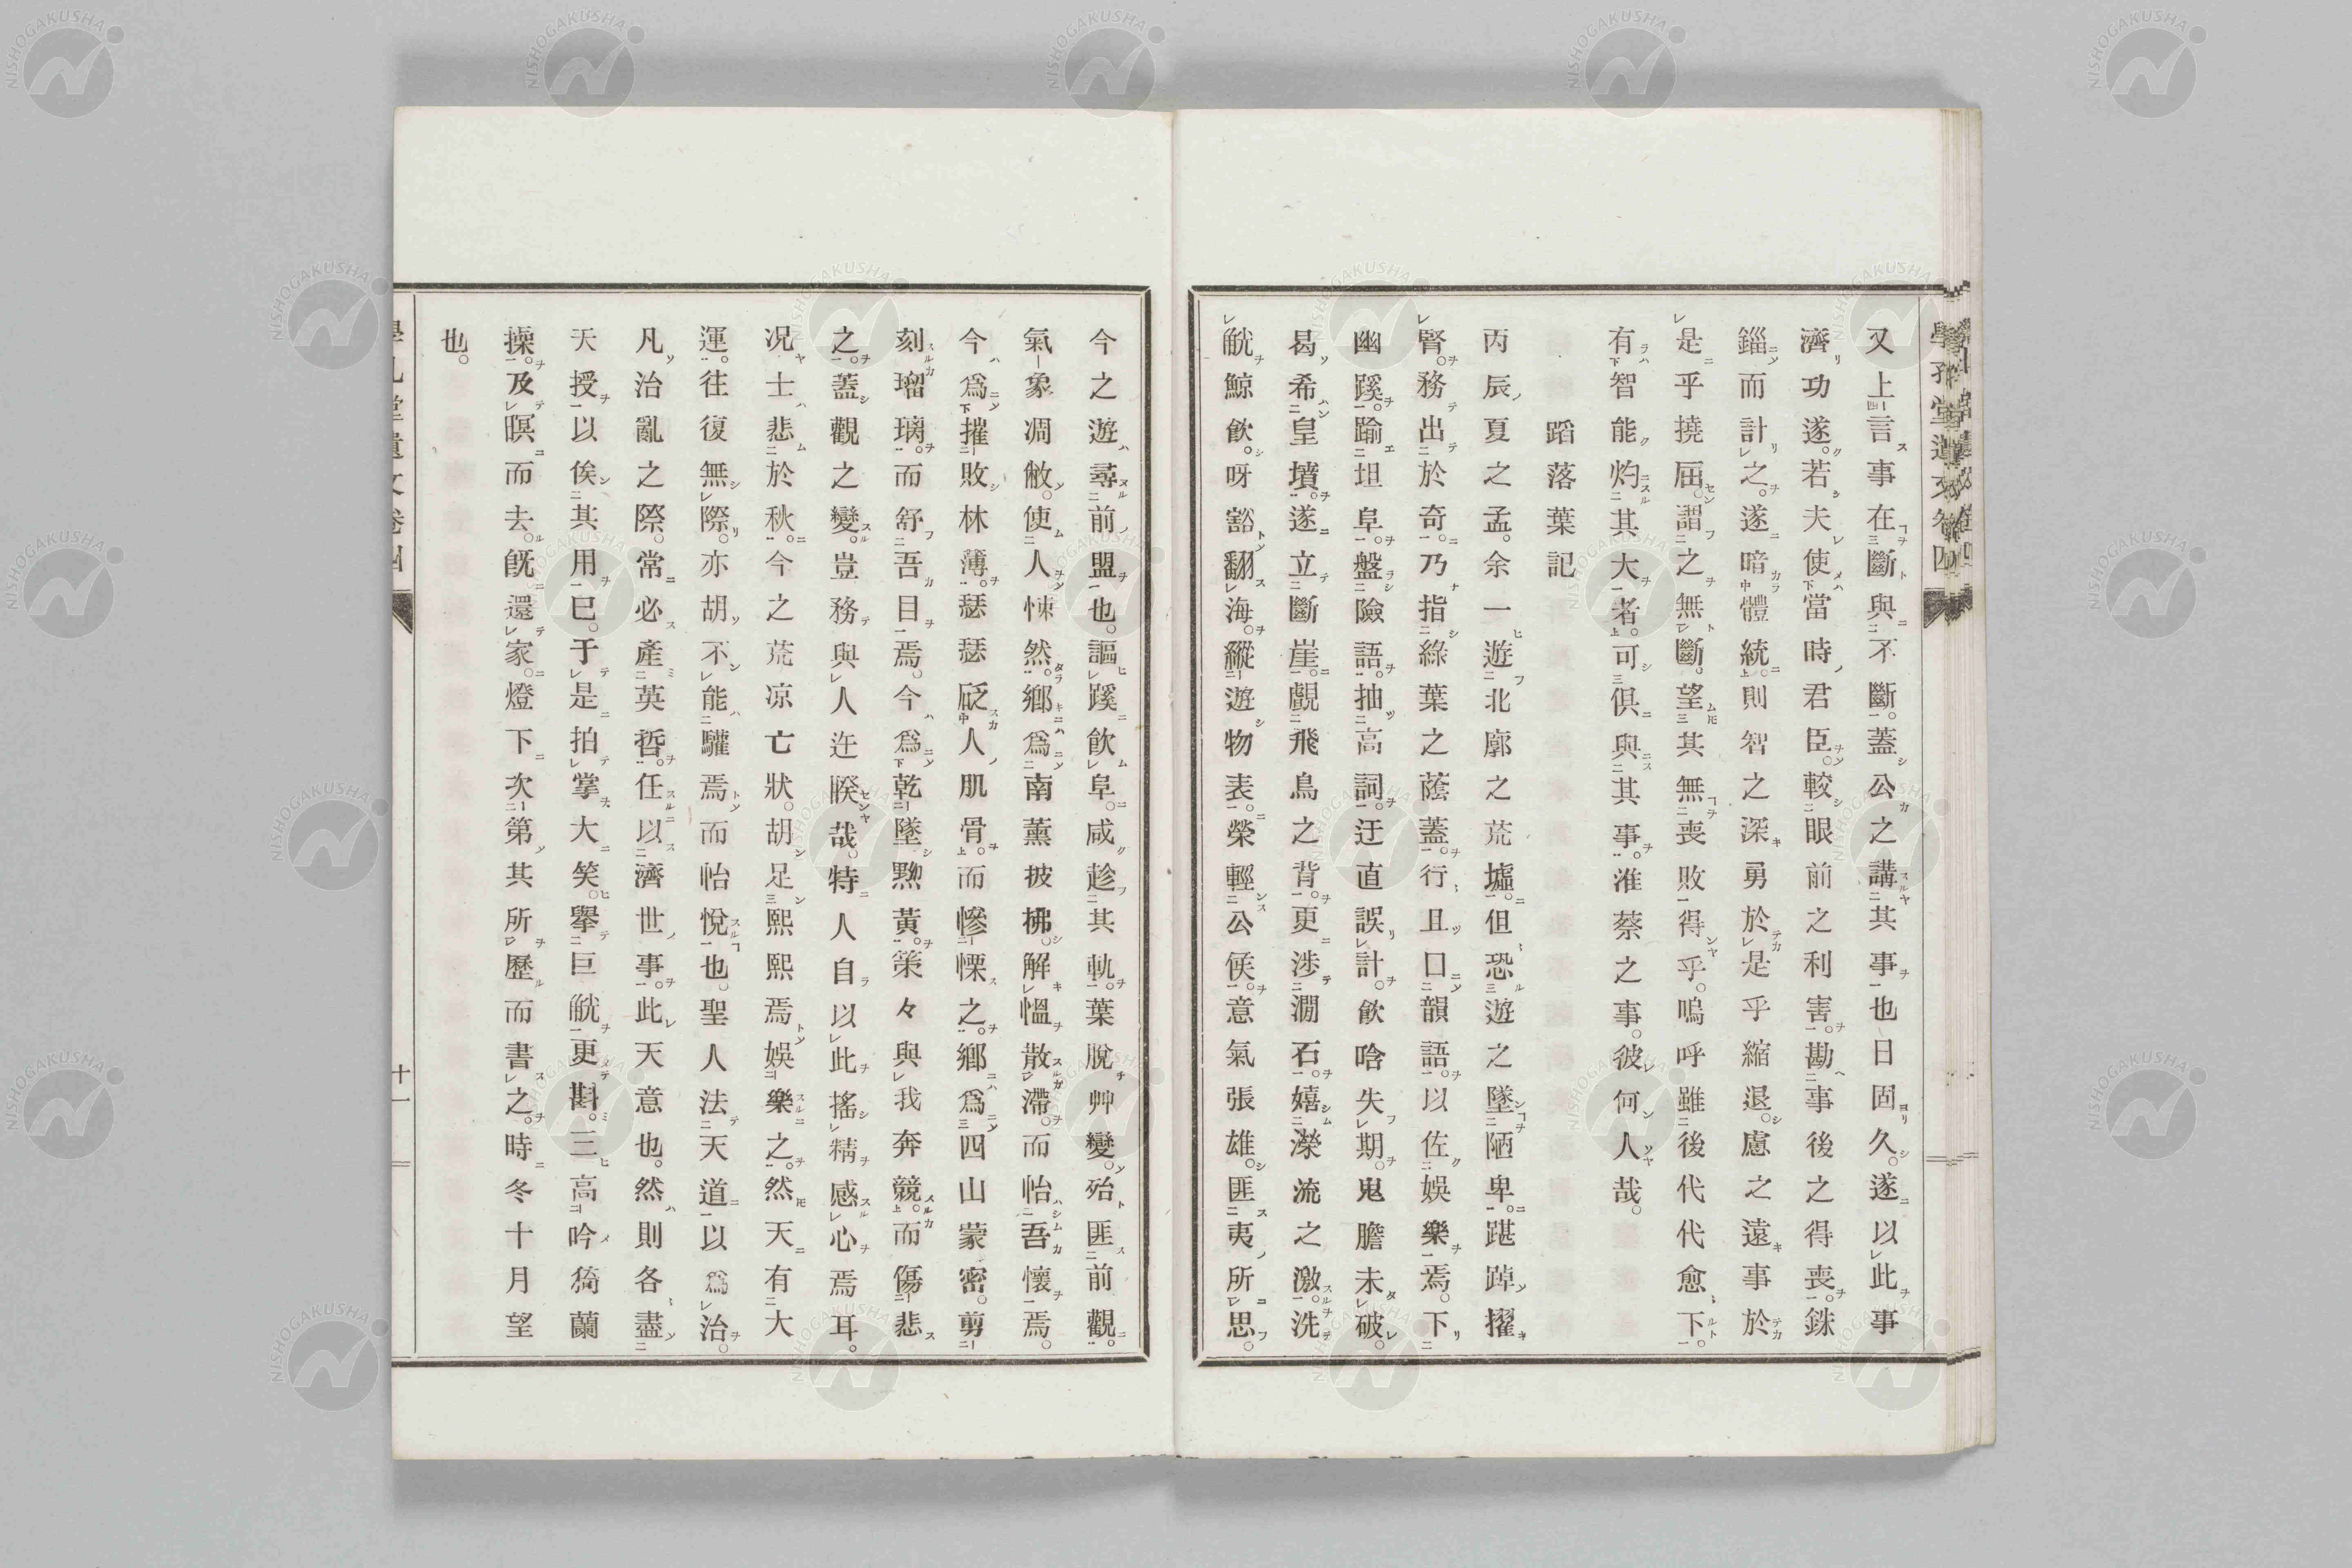 又上言事在斷與不斷。蓋公之講其事也日固久。遂以此事
濟功遂。若夫使當時君臣。較眼前之利害。勘事後之得喪。銖
錙而計之。遂暗體統。則智之深勇於是乎縮退。慮之遠事於
是乎撓屈。謂之無斷。望其無喪敗得乎。嗚呼雖後代代愈下。
有智能灼其大者。可俱與其事。淮蔡之事。彼何人哉。
蹈落葉記
丙辰夏之孟。余一遊北廓之荒墟。但恐遊之墜陋卑。踸踔擢
腎。務出於奇。乃指綠葉之蔭蓋。行且口韻語。以佐娛樂焉。下
幽蹊。踰坦阜。盤險語。抽高詞。迂直誤計。飮啥失期。鬼膽未破。
曷希皇墳。遂立斷崖。覰飛鳥之背。更涉澗石。嬉濚流之激。洗
觥鯨飮。呀豁翻海。縱遊物表。榮輕公侯。意氣張雄。匪夷所思。
今之遊尋前盟也。謳蹊飮阜。咸趁其軌。葉脫艸變。殆匪前觀。
氣象凋敝。使人悚然。鄕爲南薰披拂。解慍散滯。而怡吾懷焉。
今爲摧敗林薄。瑟瑟砭人肌骨。而慘慄之。鄕爲四山蒙密。剪
刻瑠璃。而舒吾目焉。今爲乾墜黝黃。策々與我奔競。而傷悲
之。蓋觀之變。豈務與人迕睽哉。特人自以此搖精感心焉耳。
况士悲於秋。今之荒凉亡狀。胡足熙熙焉娛樂之。然天有大
運。往復無際。亦胡不能驩焉而怡悅也。聖人法天道以爲治。
凡治亂之際。常必產英哲。任以濟世事。此天意也。然則各盡
天授以俟其用已。于是拍掌大笑。擧巨觥更斟。三高吟猗蘭
操。及暝而去。旣還家。燈下次第其所歷而書之。時冬十月望
也。
十一